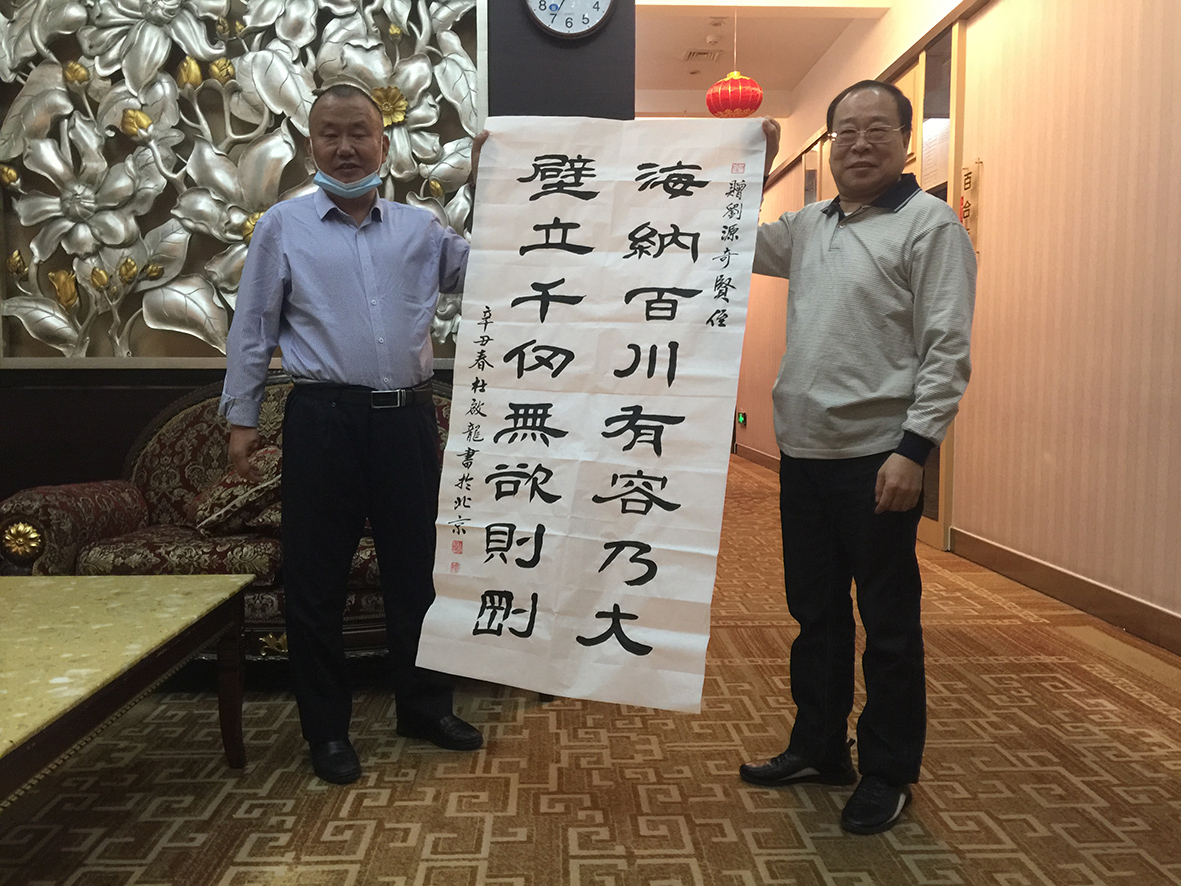 贈劉源奇賢侄
海納百川有容乃大
壁立千仞無欲則剛
辛丑春杜啟龍書於北京
8 7 6 5 4
百合